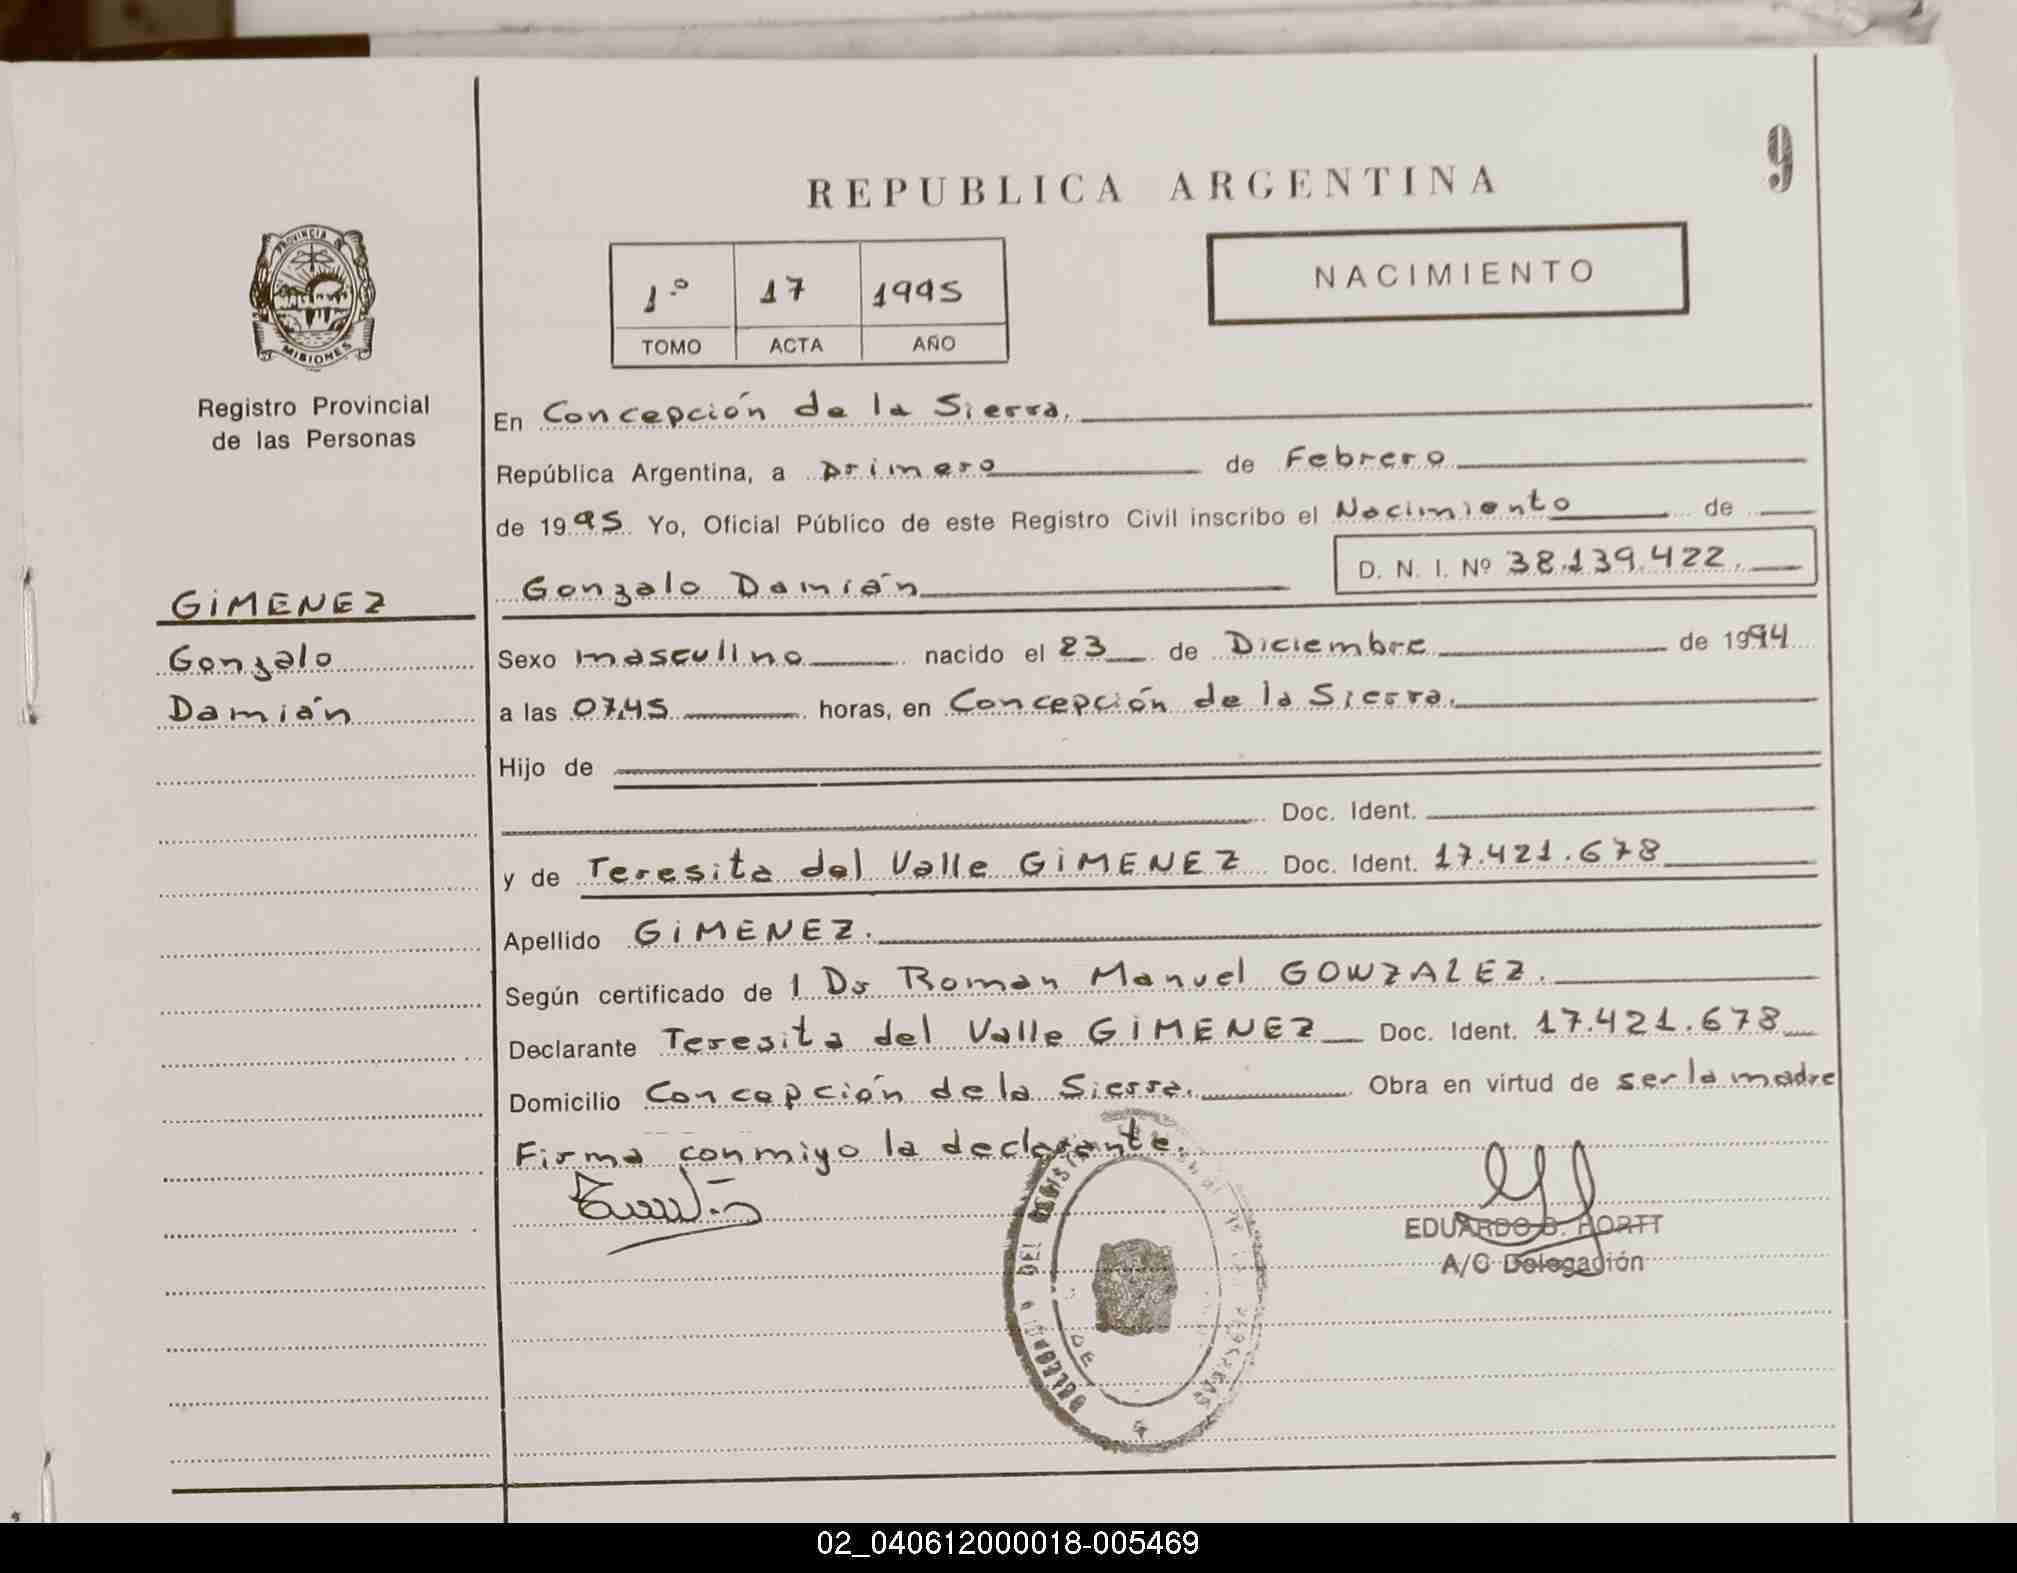 9
REPUBLICA ARGENTINA
PROVINCIA DE
MISIONES
Registro Provincial
de las Personas
1º 17 1995
TOMO ACTA AÑO
NACIMIENTO
En Concepción de la Sierra.
República Argentina, a primero de Febrero
de 1995 Yo, Oficial Público de este Registro Civil inscribo el Nacimiento de
D. N. I. Nº 38.139.422.
Gonzalo Damián
GiMENEZ
Gonzalo
Damián
Sexo masculino nacido el 23 de Diciembre de 1994
a las 07,45 horas, en Concepción de la Sierra.
Hijo de
Doc. Ident.
y de Teresita del Valle GiMENEZ Doc. Ident. 17.421.678
Apellido GiMENEZ.
Según certificado de 1 Dr Roman Manuel GONZALEZ.
Declarante Teresita del Valle GiMENEZ Doc. Ident. 17.421.678
Domicilio Concepción de la Sierra. Obra en virtud de ser la madre
Firma conmigo la declarante.
EDUARDO B. HORTT
A/C Delegación
DEL
DE
02_040612000018-005469